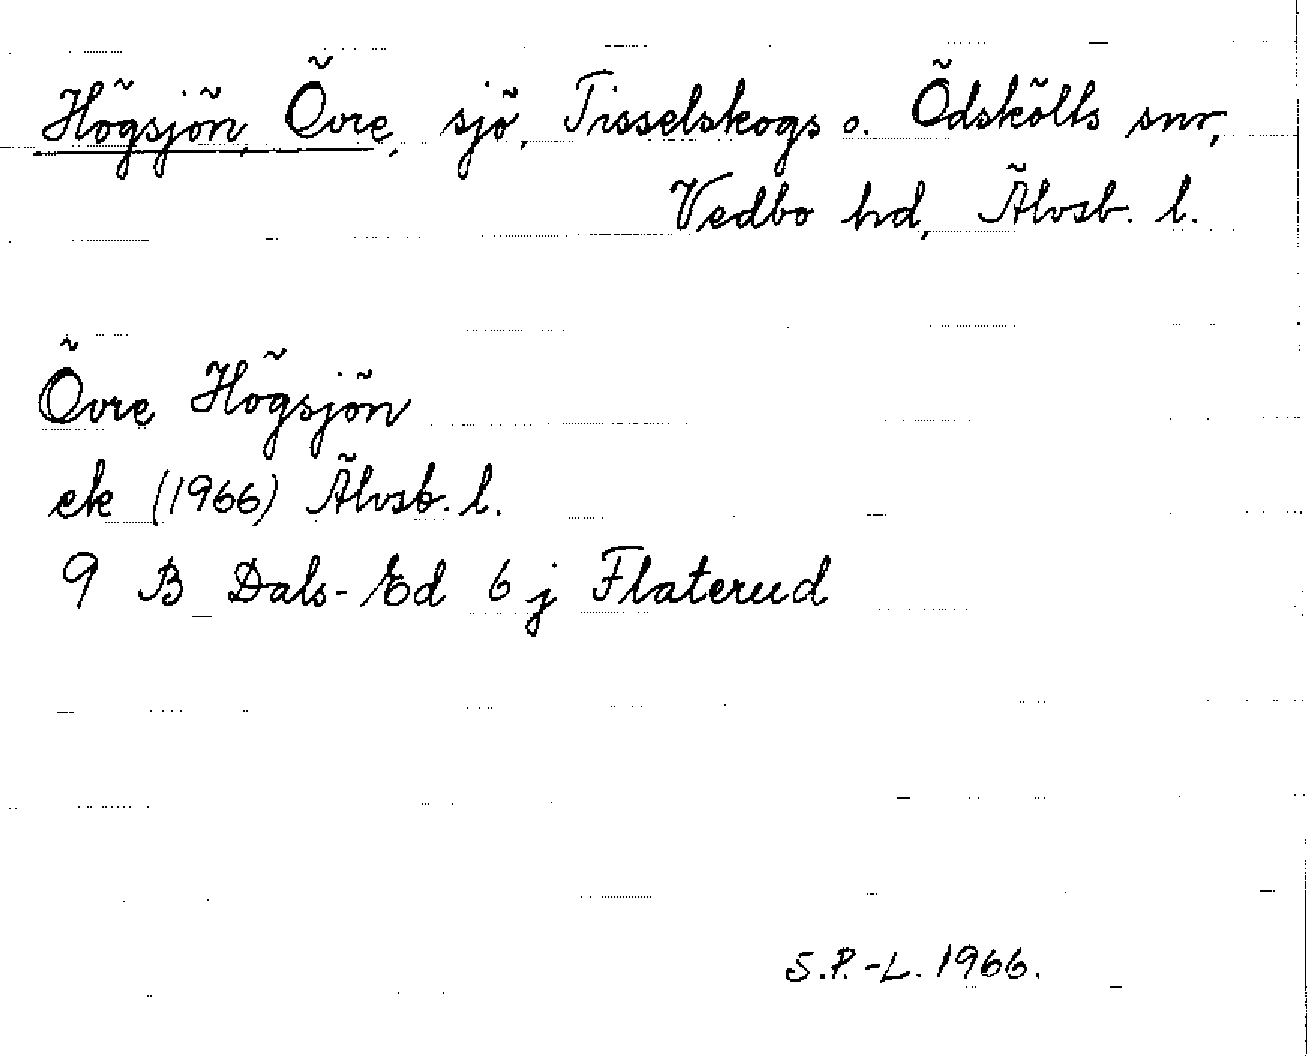 Högsjön, Övre, sjö, Tisselskogs o. Ödskölts snr,
Vedbo hd, Älvsb. l.
Övre Högsjön
ek (1966) Älvsb. l.
9 B Dals-Ed 6 j Flaterud
S.P.-L. 1966.